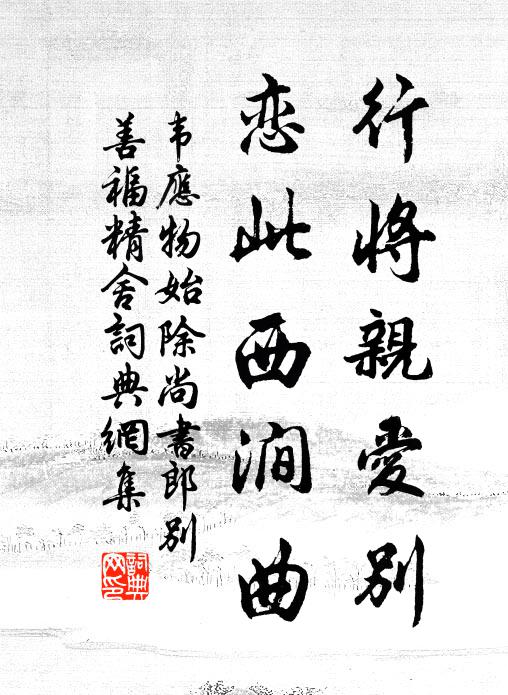 行将親愛別
恋此西澗曲
韦應物始除尚書郎别
善福精舍詞典網集
詞典网印